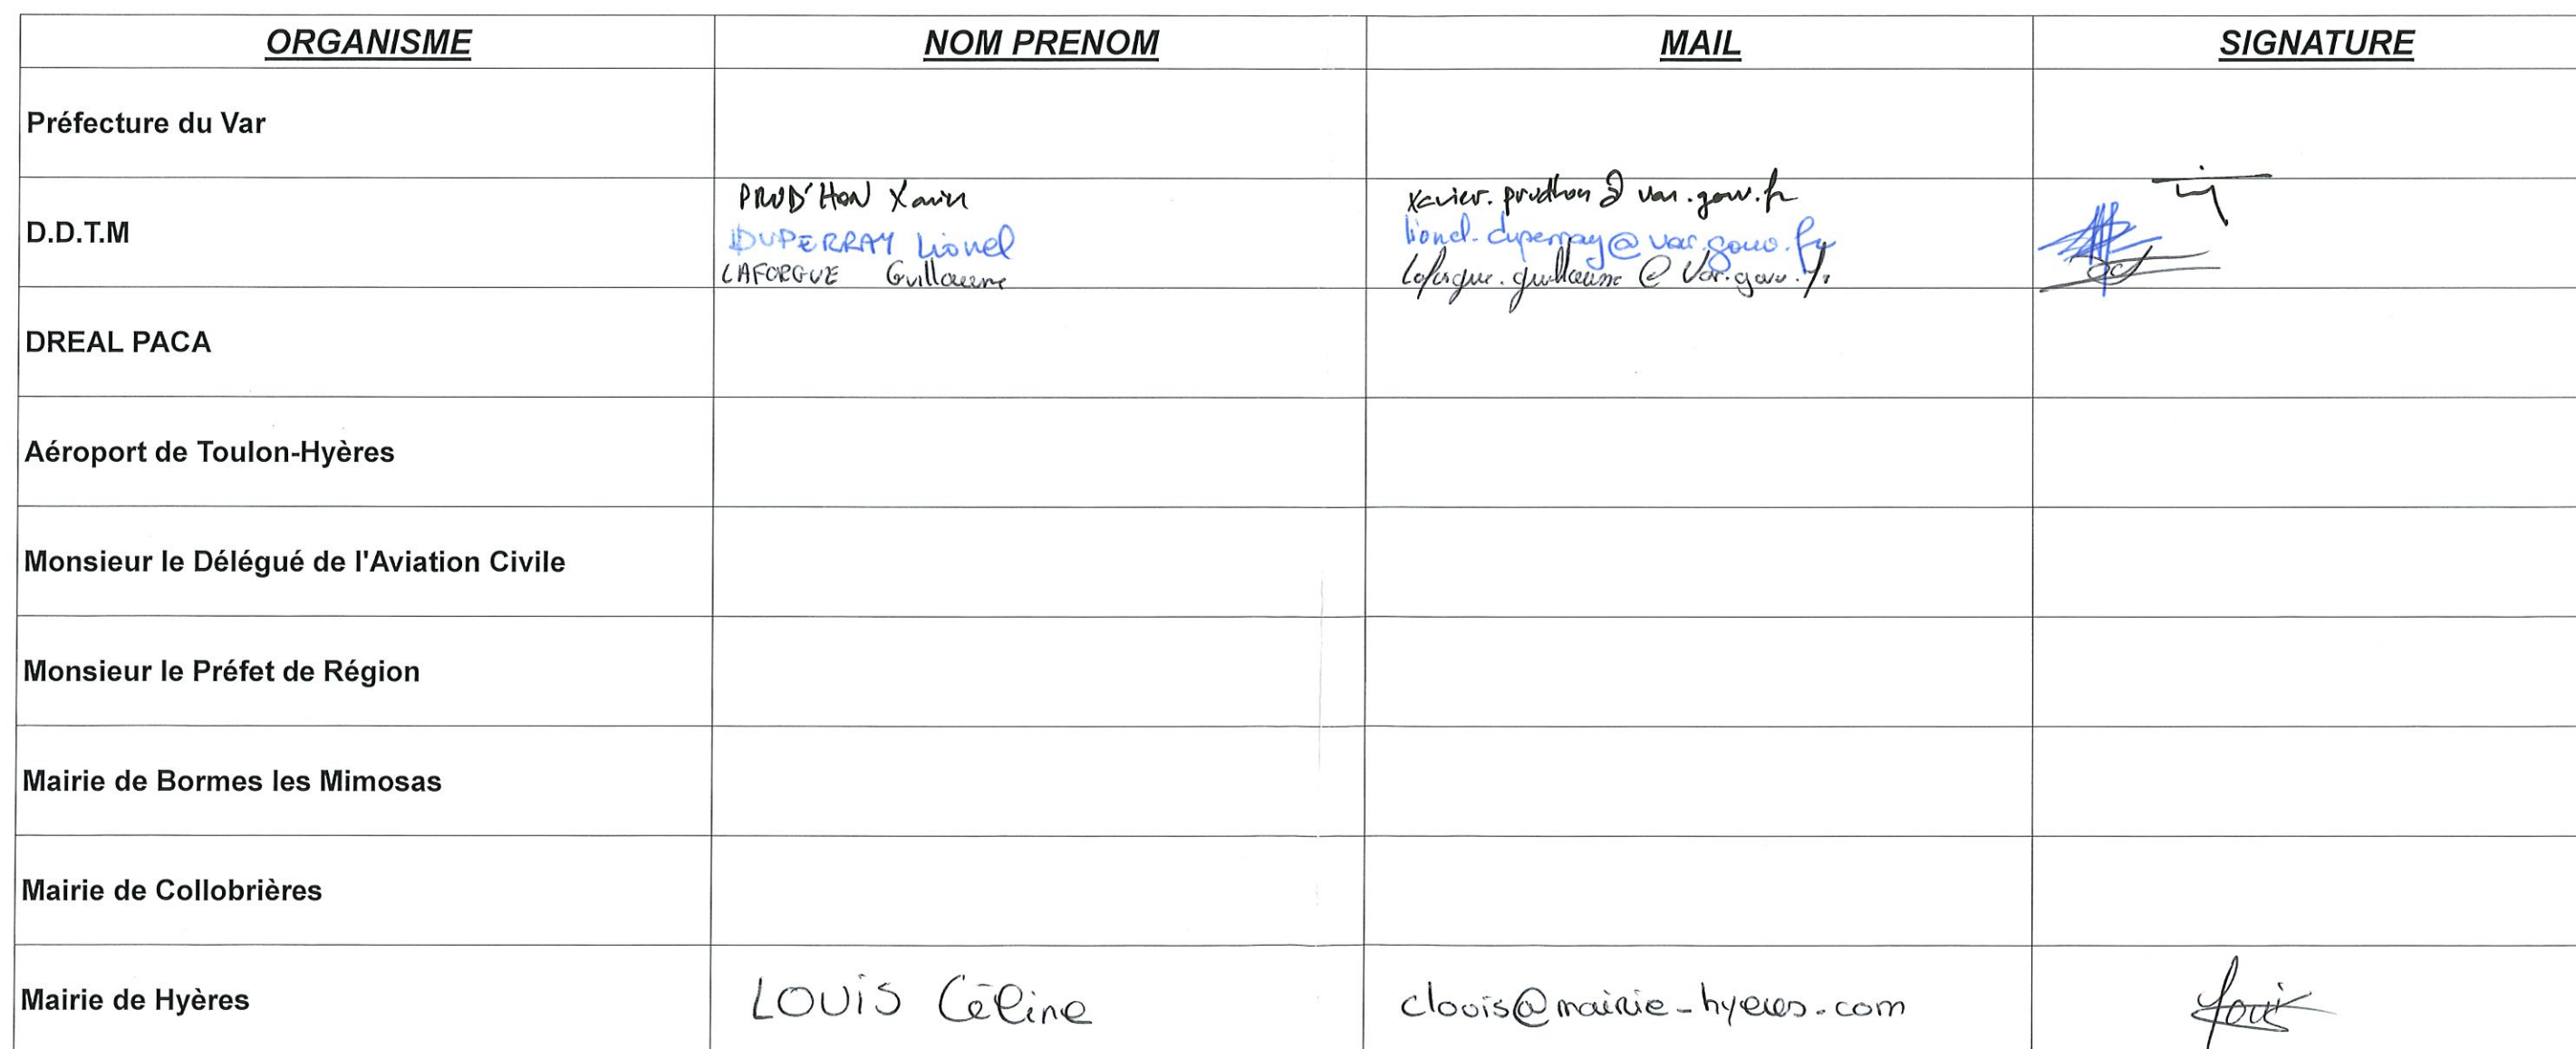 ORGANISME NOM PRENOM MAIL SIGNATURE
Préfecture du Var
D.D.T.M
PRUD'HON Xavier xavier.prudhon@var.gouv.fr
DUPERRAY Lionel lionel.duperray@var.gouv.fr
LAFORGUE Guillaume laforgue.guillaume@var.gouv.fr
DREAL PACA
Aéroport de Toulon-Hyères
Monsieur le Délégué de l'Aviation Civile
Monsieur le Préfet de Région
Mairie de Bormes les Mimosas
Mairie de Collobrières
Mairie de Hyères LOUIS Céline clouis@mairie-hyeres.com